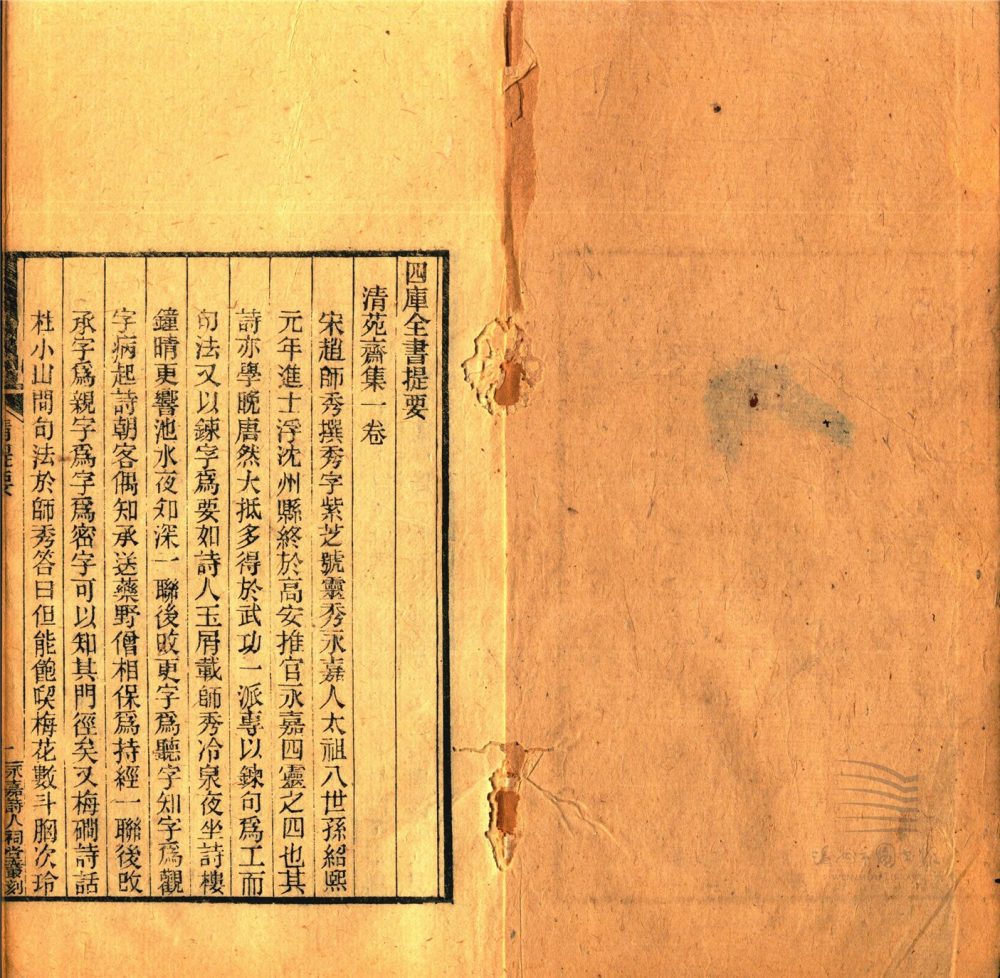 四庫全書提要
清苑齋集一卷
宋趙師秀撰秀字紫芝號靈秀永嘉人太祖八世孫紹熙
元年進士浮沈州縣終於高安推官永嘉四靈之四也其
詩亦學晚唐然大抵多得於武功一派專以鍊句爲工而
句法又以鍊字爲要如詩人玉屑載師秀冷泉夜坐詩樓
鐘晴更響池水夜知深一聯後改更字爲聽字知字爲觀
字病起詩朝客偶知承送藥野僧相保爲持經一聯後改
承字爲親字爲字爲密字可以知其門徑矣又梅磵詩話
杜小山問句法於師秀答曰但能飽喫梅花數斗胸次玲
清提要
一
永嘉詩人祠堂叢刻